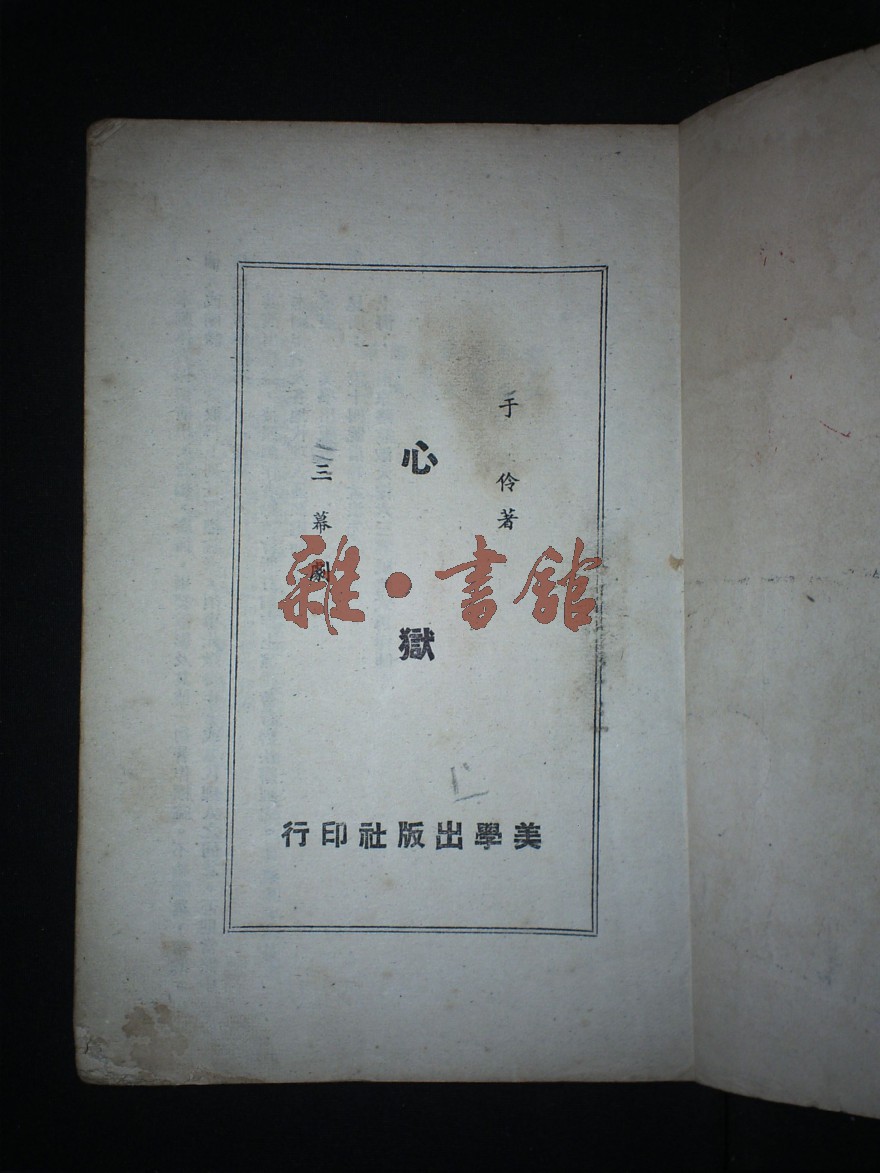 于伶著
心獄
三幕劇
美學出版社印行
雜·書館